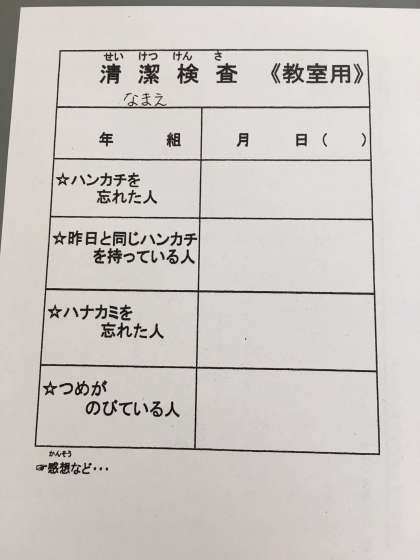 せい けつ けん さ
清潔検査 《教室用》
なまえ
年 組 月 日( )
☆ハンカチを
忘れた人
☆昨日と同じハンカチ
を持っている人
☆ハナカミを
忘れた人
☆つめが
のびている人
かんそう
☞感想など・・・